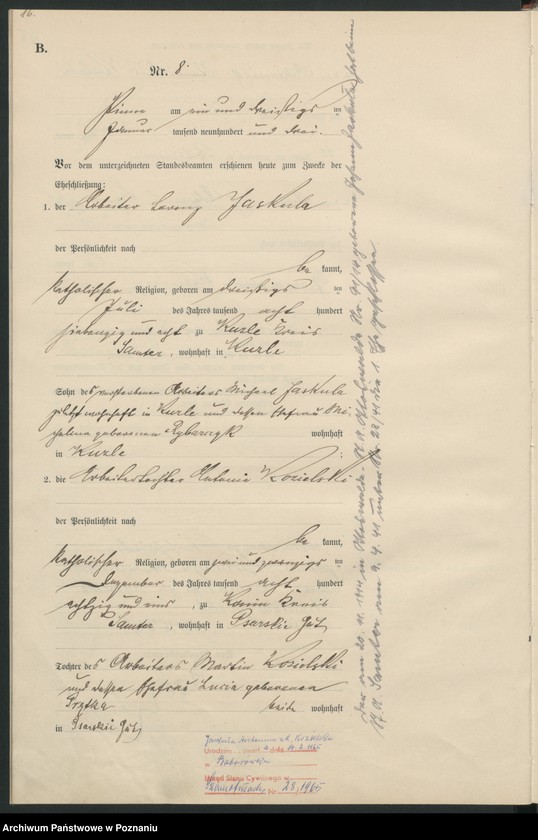 16.
B.
Nr. 8
Pinne am ein und dreißigs ten
Januar tausend neunhundert und drei.
Vor dem unterzeichneten Standesbeamten erschienen heute zum Zwecke der
Eheschließung:
1. der Arbeiter Lorenz Jaskula
der Persönlichkeit nach
be kannt,
katholischer Religion, geboren am dreißigs ten
Juli des Jahres tausend acht hundert
siebenzig und acht zu Kurle Kreis
Samter, wohnhaft in Kurle
Sohn des verstorbenen Arbeiters Michael Jaskula
zuletzt wohnhaft in Kurle und dessen Ehefrau Mi-
chalina geborenen Rybarczyk wohnhaft
in Kurle
2. die Arbeitertochter Antonie Kozielski
der Persönlichkeit nach
be kannt,
katholischer Religion, geboren am zwei und zwanzigs ten
Dezember des Jahres tausend acht hundert
achtzig und eins, zu Kreis
Samter, wohnhaft in Psarskie Gut,
Tochter des Arbeiters Martin Kozielski
und dessen Ehefrau Lucie geborenen
beide wohnhaft
in Psarskie Gut,
Jaskula Antonina z d. Kozielska
dnia 14. 2. 1965
w
Urząd Stanu Cywilnego w
Szamotuły Nr. 28/1965
am 20. 11. 1914 in geborene Jaskula hat beim
St. A. Samter am 9. 4. 41 unter Nr. 28/41 die 1. Ehe geschlossen
Archiwum Państwowe w Poznaniu